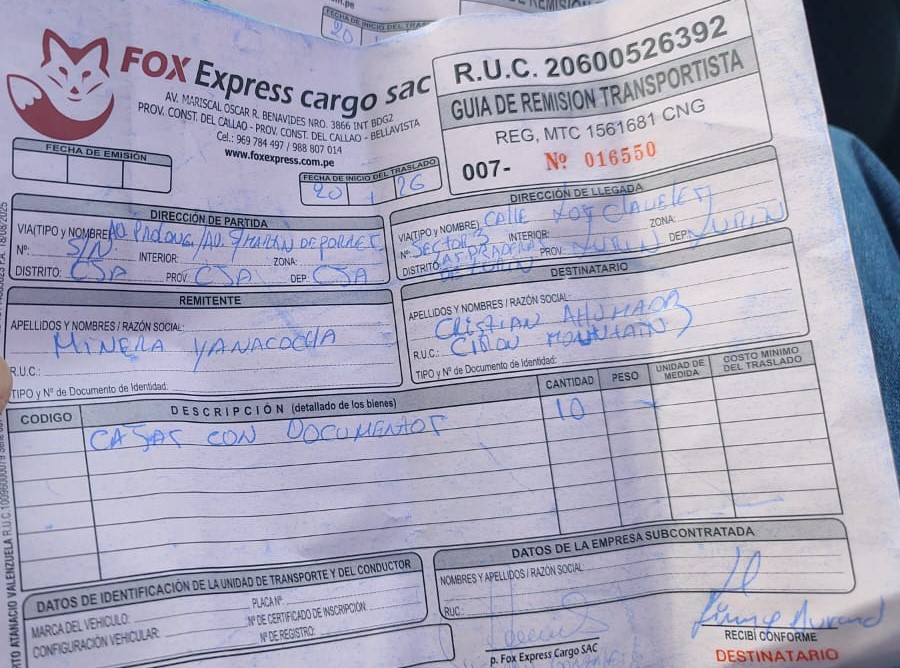 FECHA DE INICIO DEL TRAS
20
REMISIÓN
FOX Express cargo sac
AV. MARISCAL OSCAR R. BENAVIDES NRO. 3866 INT BDG2
PROV. CONST. DEL CALLAO - PROV. CONST. DEL CALLAO - BELLAVISTA
Cel.: 969 784 497 / 988 807 014
www.foxexpress.com.pe
R.U.C. 20600526392
GUIA DE REMISION TRANSPORTISTA
REG, MTC 1561681 CNG
007- Nº 016550
FECHA DE EMISIÓN
FECHA DE INICIO DEL TRASLADO
20 1 26
DIRECCIÓN DE PARTIDA
VIA(TIPO y NOMBRE)
Nº: S/N INTERIOR: ZONA:
DISTRITO: PROV. DEP.
DIRECCIÓN DE LLEGADA
VIA(TIPO y NOMBRE) CALLE LOS CLAVELES
Nº SECTOR 3 INTERIOR: ZONA:
DISTRITO: LAS PRADERAS PROV. LURIN DEP. LURIN
DE LURIN
REMITENTE
APELLIDOS Y NOMBRES / RAZÓN SOCIAL:
MINERA YANACOCHA
R.U.C.:
TIPO y Nº de Documento de Identidad:
DESTINATARIO
APELLIDOS Y NOMBRES / RAZÓN SOCIAL:
CRISTIAN AHUMADA
R.U.C.:
TIPO y Nº de Documento de Identidad:
CODIGO DESCRIPCIÓN (detallado de los bienes) CANTIDAD PESO UNIDAD DE MEDIDA COSTO MINIMO DEL TRASLADO
CAJAS CON DOCUMENTOS 10
DATOS DE IDENTIFICACIÓN DE LA UNIDAD DE TRANSPORTE Y DEL CONDUCTOR
MARCA DEL VEHICULO: PLACA Nº
CONFIGURACIÓN VEHICULAR: Nº DE CERTIFICADO DE INSCRIPCIÓN:
Nº DE REGISTRO:
DATOS DE LA EMPRESA SUBCONTRATADA
NOMBRES Y APELLIDOS / RAZÓN SOCIAL
RUC:
p. Fox Express Cargo SAC
RECIBÍ CONFORME
DESTINATARIO
ATANACIO VALENZUELA R.U.C.
18/08/2025